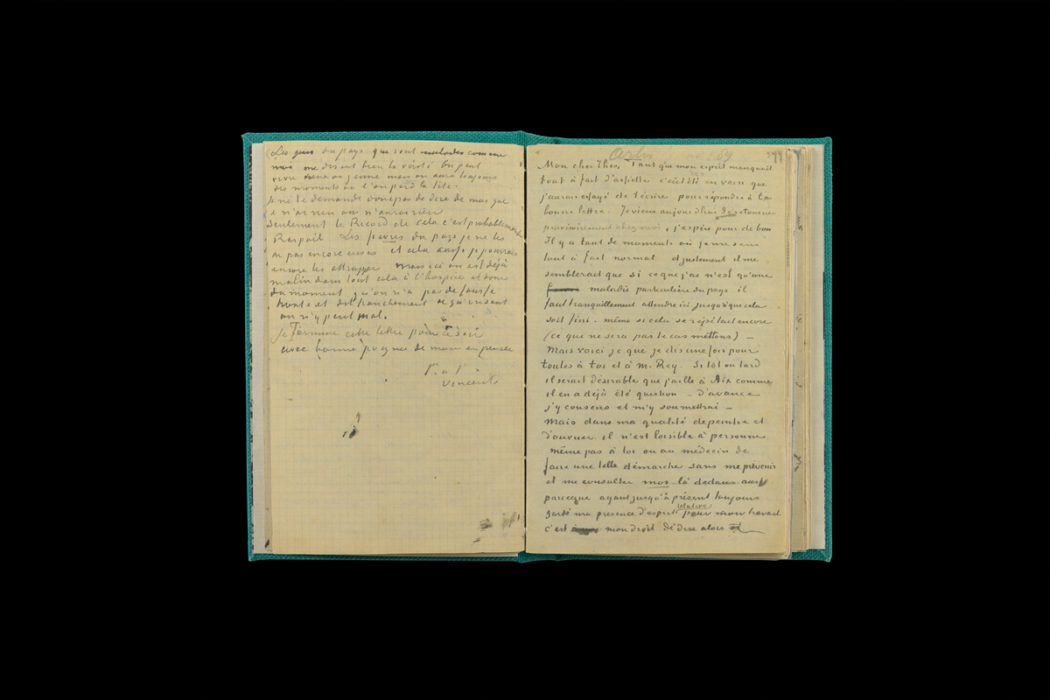 Les gens du pays qui sont malades comme
moi me disent bien la vérité. On peut
vivre vieux ou jeune mais on aura toujours
des moments où l'on perd la tête.
Je ne te demande donc pas de dire de moi que
je n'ai rien ou n'aurai rien
Seulement le Ricord de cela c'est probablement
Raspail. Les fièvres du pays je ne les
ai pas encore eues et cela aussi je pourrais
encore les attraper. Mais ici on est déjà
malin dans tout cela à l'hospice et donc
du moment qu'on n'a pas de fausse
honte et dit franchement ce qu'on sent
on n'y peut mal.
Je termine cette lettre pour ce soir
avec bonne poignée de main en pensée
t. à t.
Vincent
Mon cher Theo, Tant que mon esprit manquait
tout à fait d'assiette c'eût été en vain que
j'aurais essayé de t'écrire pour répondre à ta
bonne lettre. Je viens aujourd'hui de retourner
provisoirement chez moi, j'espère pour de bon
Il y a tant de moments où je me sens
tout à fait normal et justement il me
semblerait que si ce que j'ai n'est qu'une
maladie particulière du pays il
faut tranquillement attendre ici jusqu'à que cela
soit fini. même si cela se répétait encore
(ce que ne sera pas le cas mettons) –
Mais voici je que je dis une fois pour
toutes à toi et à M. Rey. Si tôt ou tard
il serait désirable que j'aille à Aix comme
il en a déjà été question – d'avance
j'y consens et m'y soumettrai –
Mais dans ma qualité de peintre et
d'ouvrier il n'est loisible à personne
même pas à toi ou au médecin de
faire une telle démarche sans me prévenir
et me consulter moi là dedans aussi
parceque ayant jusqu'à présent toujours
gardé ma présence d'esprit relative pour mon travail
c'est mon droit de dire alors